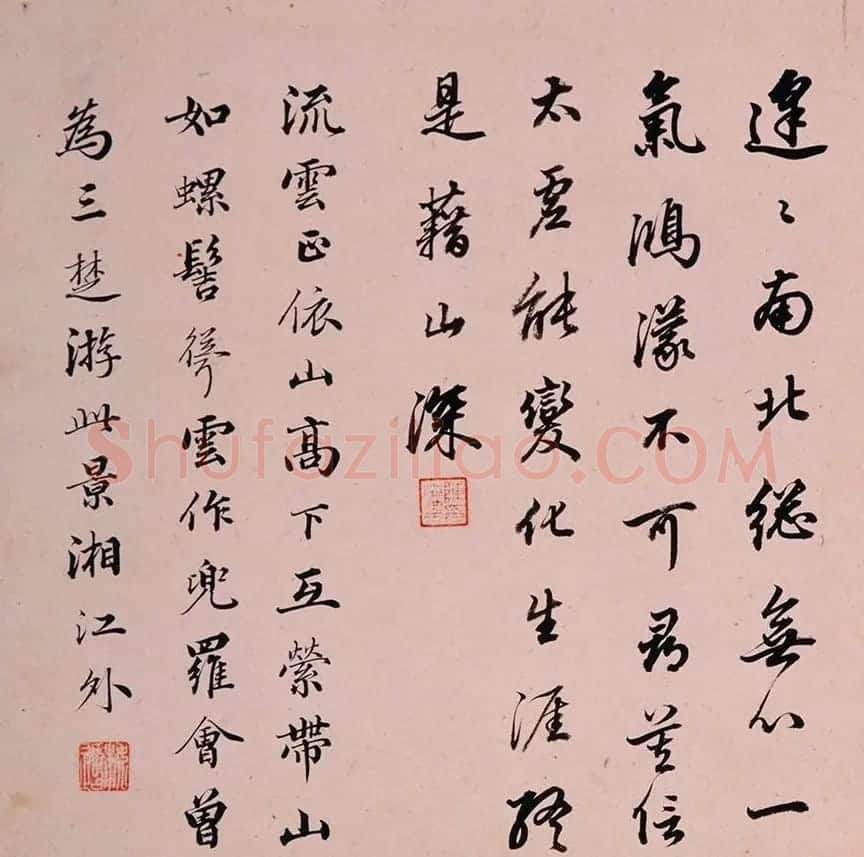 逢〻南北總無心一
氣鴻濛不可尋莫信
太虛能變化生涯終
是藉山深
流雲正依山高下互縈帶山
如螺髻聳雲作兜羅會曾
為三楚游此景湘江外
Shufaziliao.COM